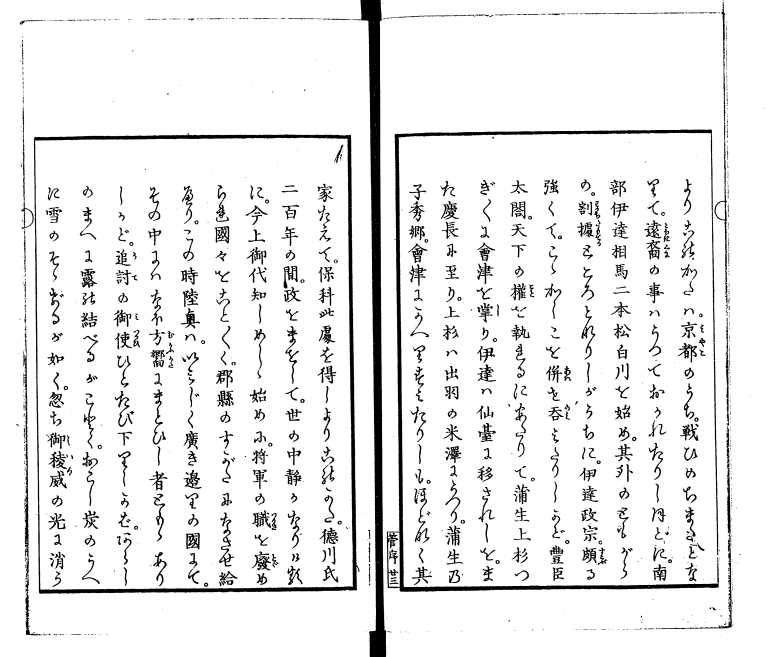 よりこのかたハ。京都のうち。戦ひのちまたとな
りて。遠裔の事ハうつておかれたりしほどに。南
部伊達相馬二本松白川を始め。其外のともがら
の。割據しところとなりしがうちに。伊達政宗。頗る
強くて。こゝかしこを併せ呑みたりしかど。豊臣
太閤。天下の權を執るにあたりて。蒲生上杉つ
ぎ〳〵に會津を掌り。伊達ハ仙臺に移されしを。ま
た慶長に至り。上杉ハ出羽の米澤にうつり。蒲生乃
子秀郷。會津にかへりすミたりしも。ほどなく其
家たえて。保科此處を得しよりこのかた。徳川氏
二百年の間。政をまをして。世の中静かなりける
に。今上御代知しめしゝ始めに。将軍の職を廢め
られ國々をことごとく。郡縣のすがたになさせ給
へり。この時陸奥ハ。いミじく廣き邊りの國にて。
その中にハなほ方嚮にまとひし者ども。あり
しかど。追討の御使ひとたび下りしかば。あらし
のまへに露の結べるがごとく。おこし炭のうへ
に雪のそゝぎおるが如く。忽ち御稜威の光に消う
菅序 廿三